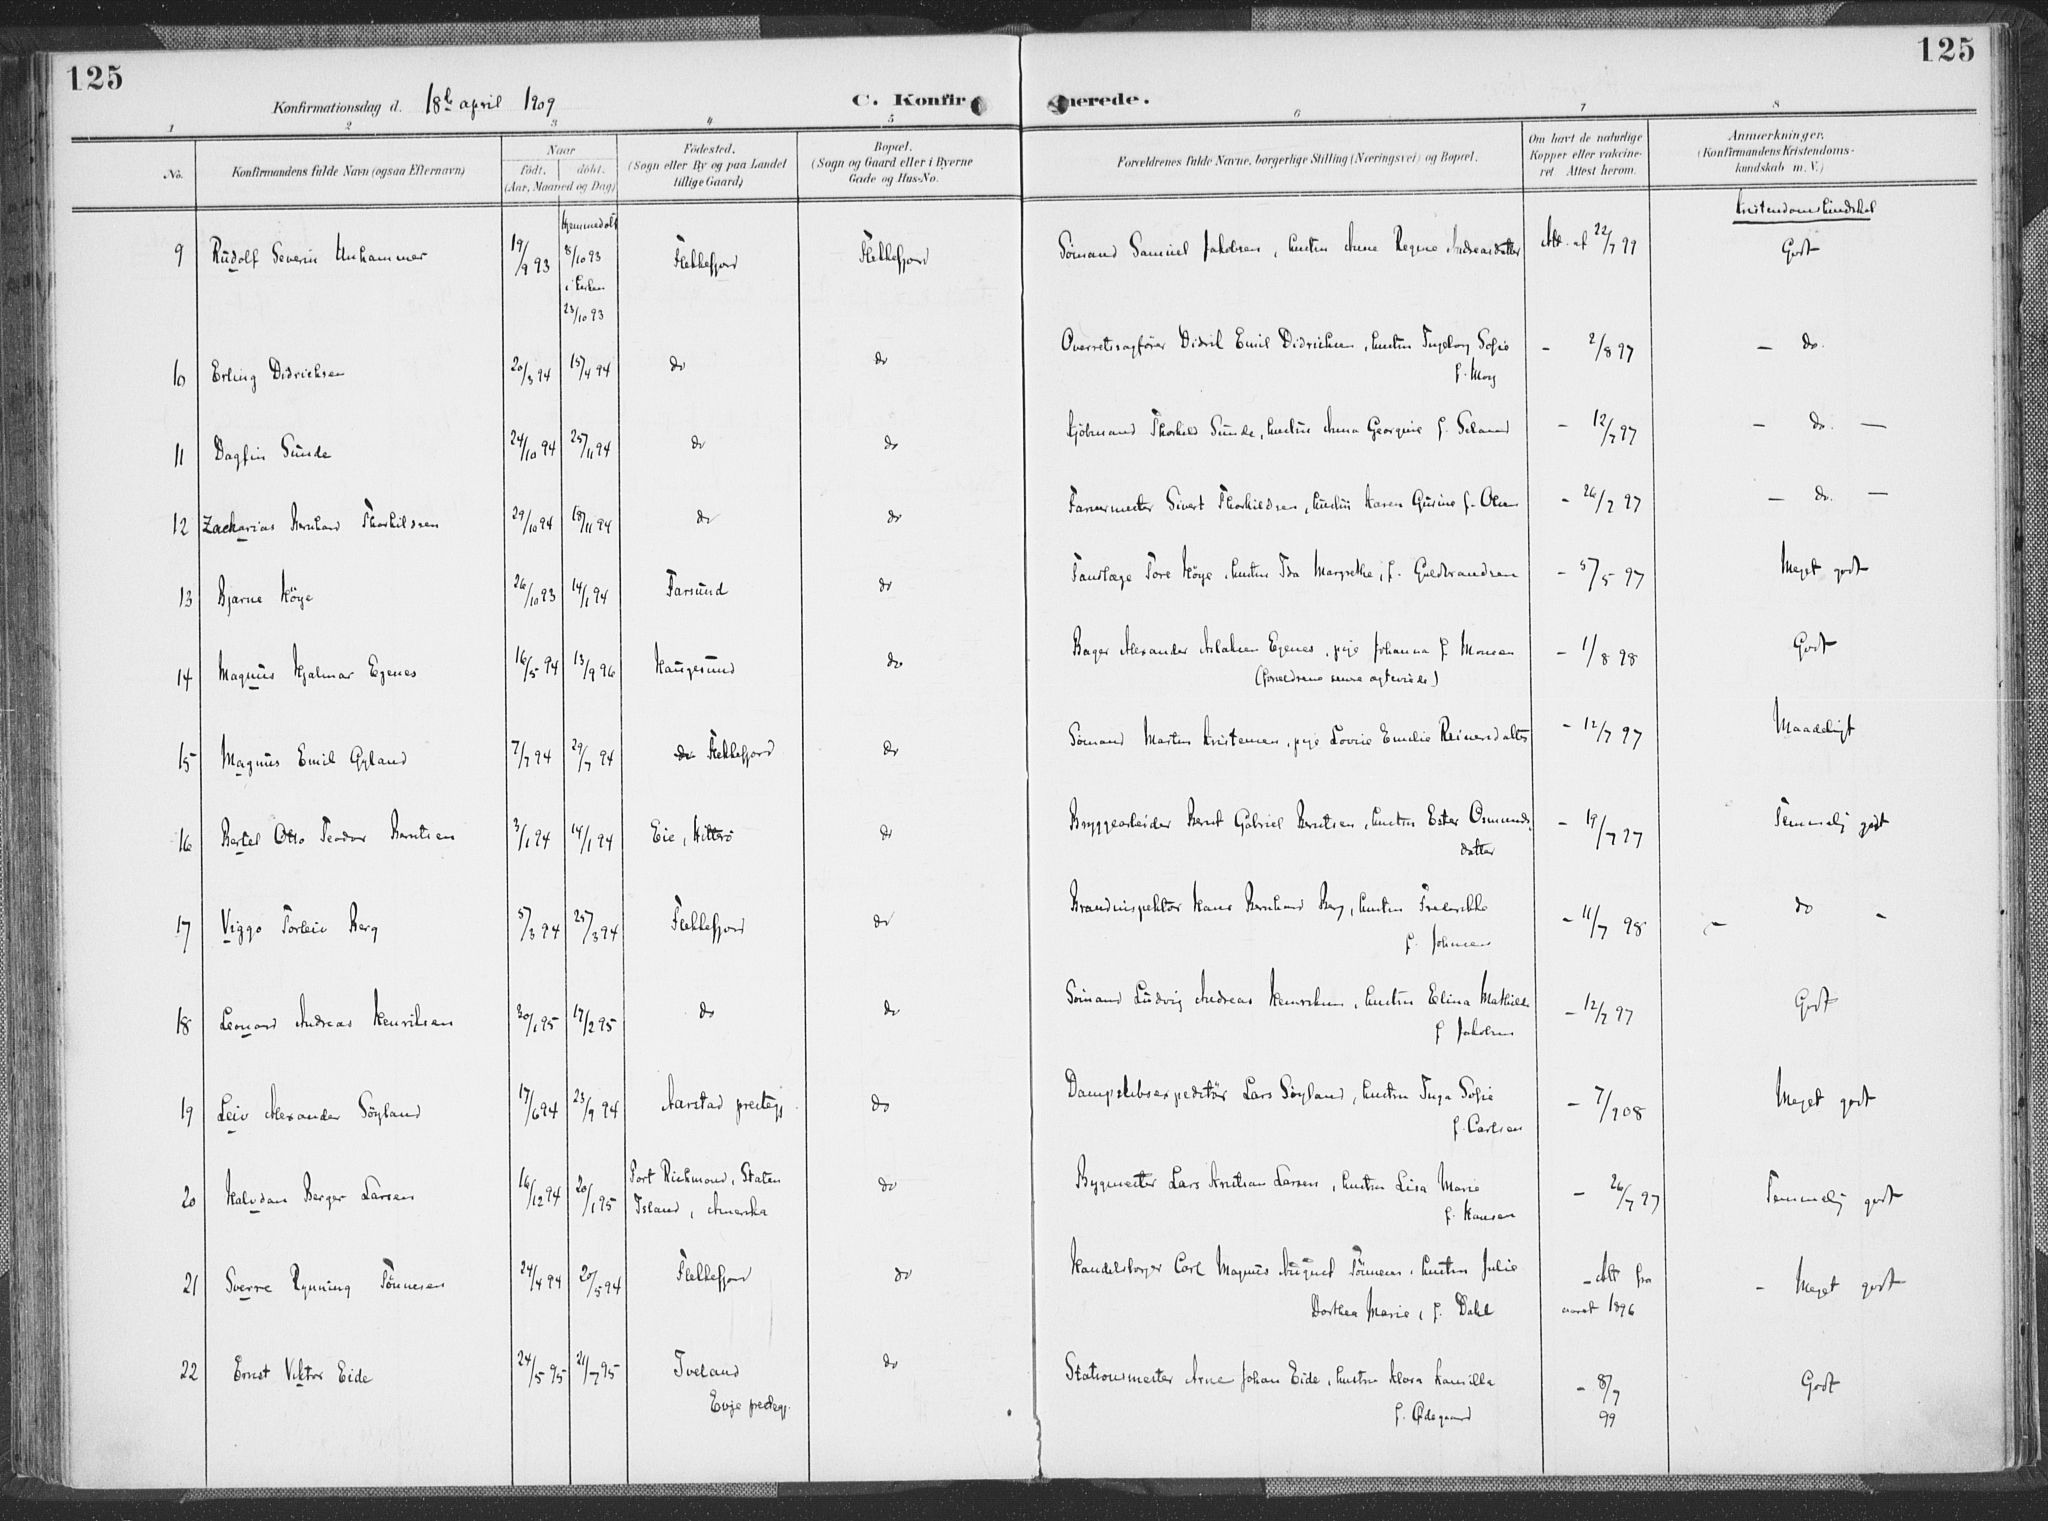 125
125
Konfirmationsdag d. 18de april 1909
C. Konfirmerede.
1 2 3 4 5 6 7 8
No.
Konfirmandens fulde Navn (ogsaa Efternavn)
Naar
født. døbt.
(Aar, Maaned og Dag)
Fødested.
(Sogn eller By og paa Landet
tillige Gaard)
Bopæl.
(Sogn og Gaard eller i Byerne
Gade og Hus-No.
Forældrenes fulde Navne, borgerlige Stilling (Næringsvei) og Bopæl.
Om havt de naturlige
Kopper eller vakcine-
ret Attest herom.
Anmærkninger.
(Konfirmandens Kristendoms-
kundskab m. V.)
Kristendomskundskab
9 Rudolf Severin Unhammer 19/9 93 Hjemmedøbt 8/10 93 i Kirken 23/10 93 Flekkefjord Flekkefjord Sømand Samuel Jakobsen, hustru Anne Regine Andreasdatter Att. af 22/7 99 Godt
10 Erling Didriksen 20/3 94 15/4 94 do do Overretssagfører Didrik Emil Didriksen, hustru Ingeborg Sofie - 2/8 97 - do.
11 Dagfin Sunde 24/10 94 25/11 94 do do Kjøbmand Thorkild Sunde, hustru Anna Georgine f. Seland - 12/7 97 - do. -
12 Zacharias Bernhard Thorkildsen 29/10 94 18/11 94 do do Farvermester Sivert Thorkildsen, hustru Karen Gurine f. Olsen - 26/7 97 - do. -
13 Bjarne Höye 26/10 93 14/1 94 Farsund do Tandlæge Tore Höye, hustru Ida Margrethe, f. Guldbrandsen - 5/5 97 Meget godt
14 Magnus Hjalmar Egenes 16/5 94 13/9 96 Haugesund do Bager Alexander Aslaksen Egenes, pige Johanna f. Monsen - 1/8 98 Godt
(forældrene senere ægteviede)
15 Magnus Emil Gyland 7/7 94 29/7 94 do Flekkefjord do Sømand Martin Kristensen, pige Lovise Emilie Reinersdatter - 12/7 97 Maadeligt
16 Bertel Otto Teodor Berntsen 3/1 94 14/1 94 Eie, Hitterö do Bryggearbeider Bernt Gabriel Berntsen, hustru Ester Osmunds-
datter - 19/7 97 Temmelig godt
17 Viggo Torleiv Berg 5/3 94 25/3 94 Flekkefjord do Brandinspektör Hans Bernhard Berg, hustru Frederikke
f. Johnsen - 11/7 98 - do -
18 Leonard Andreas Henriksen 30/1 95 17/2 95 do do Sømand Ludvig Andreas Henriksen, hustru Elina Mathilde
f. Jakobsen - 12/7 97 Godt
19 Leiv Alexander Söyland 17/6 94 23/9 94 Aarstad prestegj. do Dampskibsexpeditör Lars Söyland, hustru Inga Sofie
f. Carlsen - 7/9 08 Meget godt
20 Halvdan Berger Larsen 16/12 94 20/1 95 Port Richmond, Staten
Island, Amerika do Bygmester Lars Kristian Larsen, hustru Lisa Marie
f. Hansen - 26/7 97 Temmelig godt
21 Sverre Rynning Tönnesen 24/4 94 20/5 94 Flekkefjord do Handelsborger Carl Magnus August Tönnesen, hustru Julie
Dorthea Marie, f. Dahl - Att fra
aaret 1896 - Meget godt
22 Ernst Viktor Eide 24/5 95 21/7 95 Iveland
Evje prestegj. do Stationsmester Arne Johan Eide, hustru Klara Kamilla
f. Ødegaard - 8/7
99 Godt